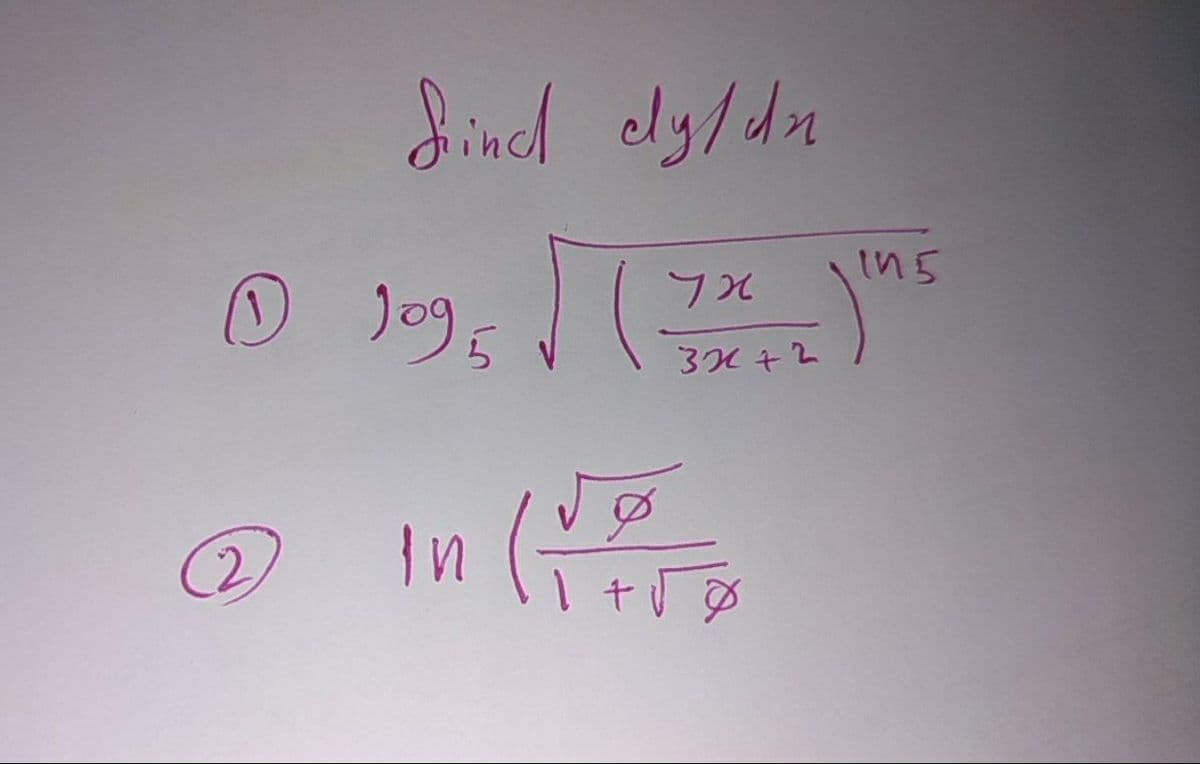 find dy/dx
① log₅ √(7x/(3x+2))^ln5
② ln (√ø/(1+√ø